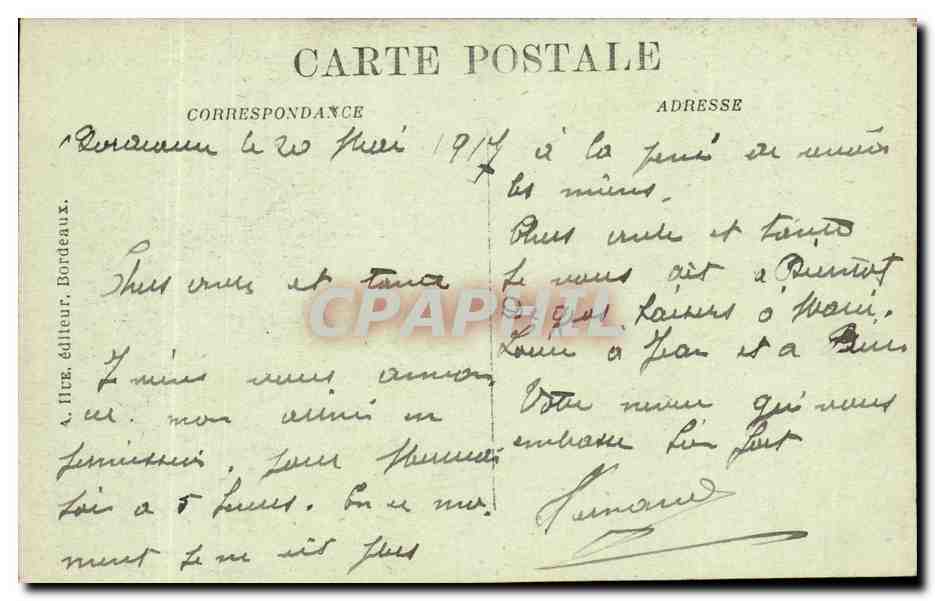 CARTE POSTALE
CORRESPONDANCE
ADRESSE
A. HUE, éditeur, Bordeaux.
Bordeaux le 20 Mai 1917
Chers oncle et tante
Je viens vous annon
ce. mon arrivé en
permission. pour
soir a 5 heures. En ce mo-
ment je ne vit plus
à la pensé de revoir
les miens.
Chers oncle et tante
Je vous dit a Bientot
De gros baisers à
à Jean et a
Votre neveu qui vous
embrasse bien fort
Fernand
CPAPHIL